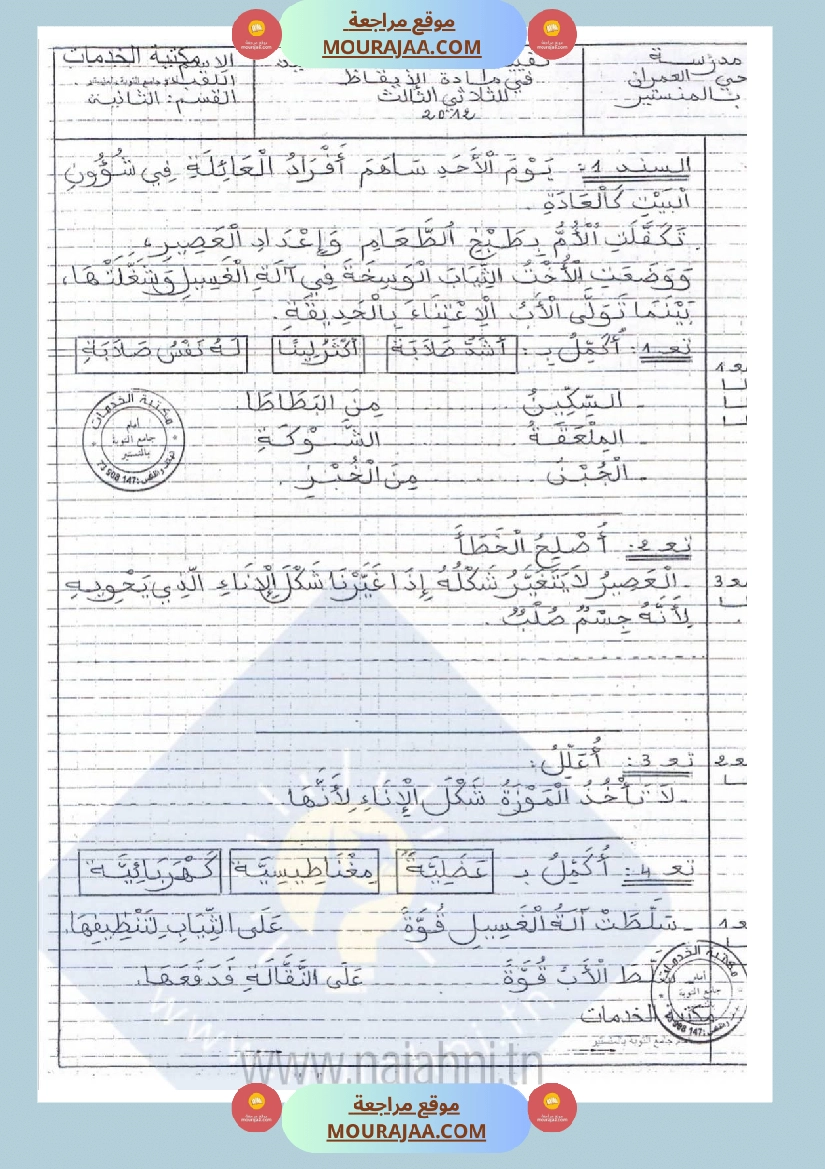 موقع مراجعة
MOURAJAA.COM
مدرسة
حي العمران
بالمنستير
في مادة الإيقاظ
للثلاثي الثالث
2012
مكتبة الخدمات
القسم: الثانية
السند 1: يَوْمَ الْأَحَدِ سَاهَمَ أَفْرَادُ الْعَائِلَةِ فِي شُؤُونِ
الْبَيْتِ كَالْعَادَةِ.
تَكَفَّلَتِ الْأُمُّ بِطَبْخِ الطَّعَامِ وَإِعْدَادِ الْعَصِيرِ،
وَوَضَعَتِ الْأُخْتُ الثِّيَابَ الْوَسِخَةَ فِي آلَةِ الْغَسِيلِ وَشَغَّلَتْهَا،
بَيْنَمَا تَوَلَّى الْأَبُ الْاِعْتِنَاءَ بِالْحَدِيقَةِ.
تعـ 1: أُكَمِّلُ بِـ: أَشَدُّ صَلَابَةً أَكْثَرُ لِينًا لَهُ نَفْسُ صَلَابَةِ
- السِّكِّينُ .......... مِنَ البَطَاطَا.
- المِلْعَقَةُ .......... الشَّوْكَةِ
- الْجُبْنُ .......... مِنَ الْخُبْزِ.
تعـ 2: أُصْلِحُ الْخَطَأَ
- الْعَصِيرُ لَا يَتَغَيَّرُ شَكْلُهُ إِذَا غَيَّرْنَا شَكْلَ الْإِنَاءِ الَّذِي يَحْوِيهِ
لِأَنَّهُ جِسْمٌ صُلْبٌ.
تعـ 3: أُعَلِّلُ:
- لَا تَأْخُذُ الْمَوْزَةُ شَكْلَ الْإِنَاءِ لِأَنَّهَا ..........
تعـ 4: أُكَمِّلُ بـ عَضَلِيَّةً مِغْنَاطِيسِيَّة كَهْرَبَائِيَّة
- سَلَّطَتْ آلَةُ الْغَسِيلِ قُوَّةً .......... عَلَى الثِّيَابِ لِتَنْظِيفِهَا.
سَلَّطَ الْأَبُ قُوَّةً .......... عَلَى النَّقَّالَةِ فَدَفَعَهَا.
مكتبة الخدمات
www.najahni.tn
موقع مراجعة
MOURAJAA.COM